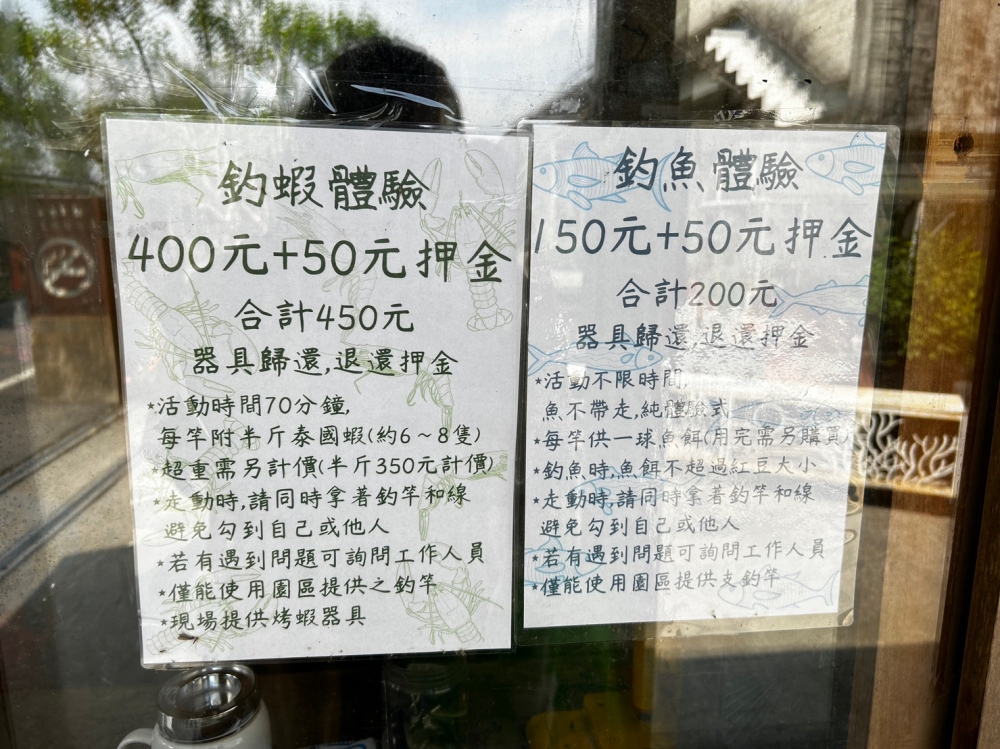 釣蝦體驗
400元+50元押金
合計450元
器具歸還,退還押金
*活動時間70分鐘,
每竿附半斤泰國蝦(約6~8隻)
*超重需另計價(半斤350元計價)
*走動時,請同時拿著釣竿和線
避免勾到自己或他人
*若有遇到問題可詢問工作人員
*僅能使用園區提供之釣竿
*現場提供烤蝦器具
釣魚體驗
150元+50元押金
合計200元
器具歸還,退還押金
*活動不限時間,
魚不帶走,純體驗式
*每竿供一球魚餌(用完需另購買)
*釣魚時,魚餌不超過紅豆大小
*走動時,請同時拿著釣竿和線
避免勾到自己或他人
*若有遇到問題可詢問工作人員
*僅能使用園區提供支釣竿